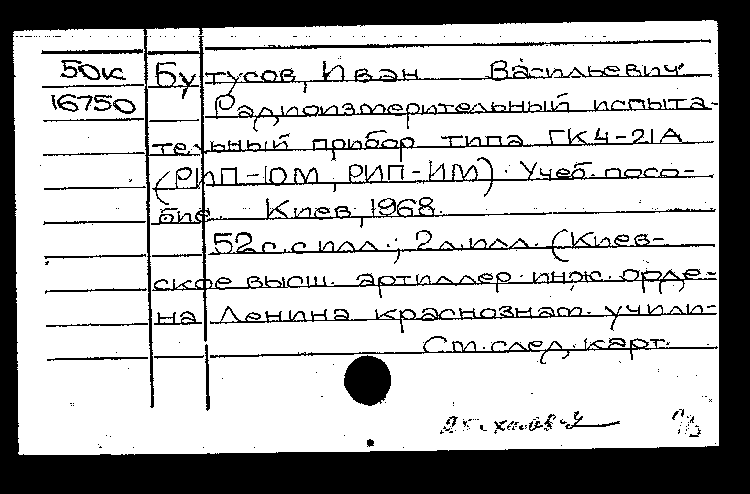 50к Бутусов, Иван Васильевич
16750 Радиоизмерительный испыта-
тельный прибор типа ГК4-21А
(РИП-10М, РИП-ИМ). Учеб. посо-
бие. Киев, 1968.
52с. с илл.; 2л.илл. (Киев-
ское высш. артиллер. инж. орде-
на Ленина краснознам. учили-
См. след. карт.